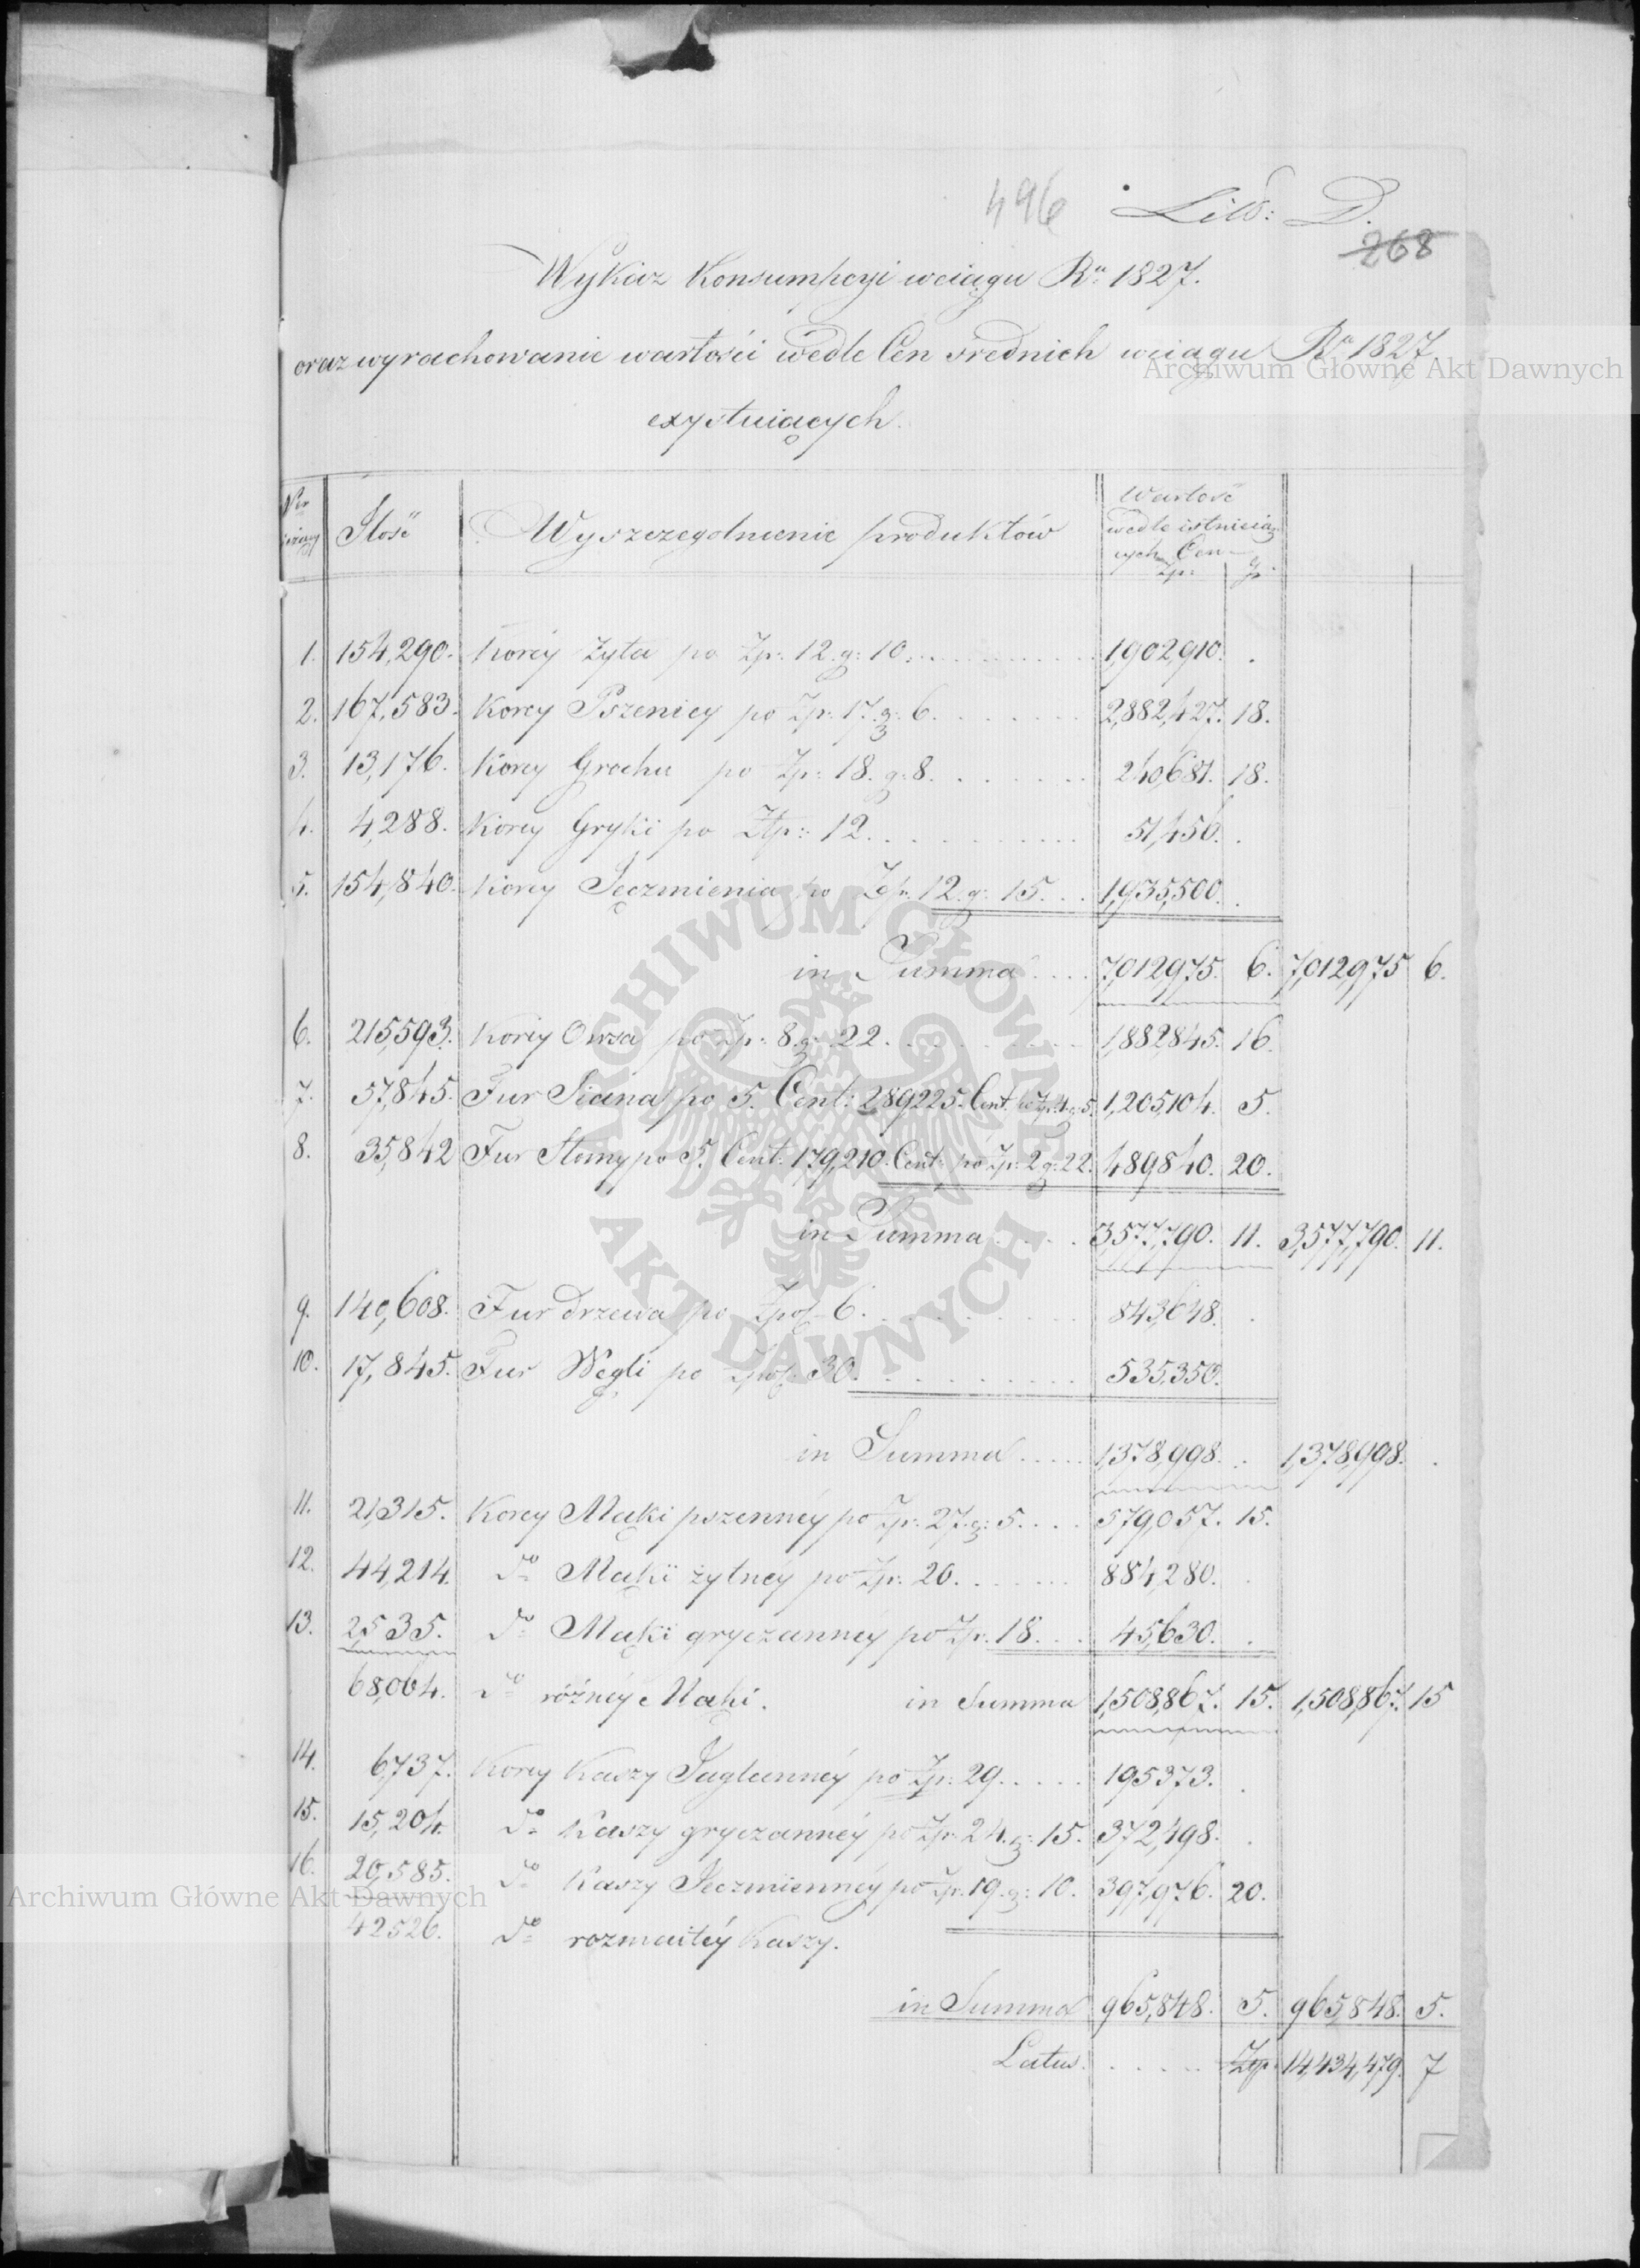 496 Litt: D.
268
Wykaz Konsumpcyi wciągu Ru 1827.
oraz wyrachowanie wartości wedle Cen srednich wciągu Ru 1827
exystuiących.
Nr Ilość Wyszczegolnienie produktów Wartość
wedle istnieią
cych Cen
Zp: gr:
1. 154,290. Korcy Żyta po Zp: 12 g: 10. 1,902,910. .
2. 167,583. Korcy Pszenicy po Zp: 17. g: 6. 2,882,427. 18.
3. 13,176. Korcy Grochu po Zp: 18. g: 8. 240,681. 18.
4. 4,288. Korcy Gryki po Złp: 12. 51,456. .
5. 154,840. Korcy Jęczmienia po Zp: 12. g: 15. 1,935,500. .
in Summa 7,012,975. 6. 7,012,975 6.
6. 215,593. Korcy Owsa po Zp: 8. g: 22. 1,882,845. 16.
7. 57,845. Fur Siana po 5. Cent: 289225. Cent: po Zp: 4 g: 5. 1,205,104. 5.
8. 35,842 Fur Słomy po 5. Cent: 179,210. Cent: po Zp: 2 g: 22. 489,840. 20.
in Summa 3,577,790. 11. 3,577,790. 11.
9. 140,608. Fur drzewa po Zpol 6. 843,648. .
10. 17,845. Fur Węgli po Zpol 30. 535,350.
in Summa 1,378,998. . 1,378,998. .
11. 21,315. Korcy Mąki pszennéy po Zp: 27. g: 5. 579,057. 15.
12. 44,214. do Mąki żytnéy po Zp: 20. 884,280. .
13. 2,535. do Mąki gryczannéy po Zp: 18. 45,630. .
68,064. do różnéy Mąki. in Summa 1,508,867. 15. 1,508,867. 15
14. 6,737. Korcy Kaszy Jaglannéy po Zp: 29. 195373. .
15. 15,204. do Kaszy gryczannéy po Zp: 24. g: 15. 372,498. .
16. 20,585. do Kaszy Jęczmiennéy po Zp: 19. g: 10. 397,976. 20.
42526. do rozmaitéy Kaszy.
in Summa 965,848. 5. 965,848. 5.
Latus. Zp: 14,434,479. 7
Archiwum Główne Akt Dawnych
ARCHIWUM GŁÓWNE AKT DAWNYCH
Archiwum Główne Akt Dawnych